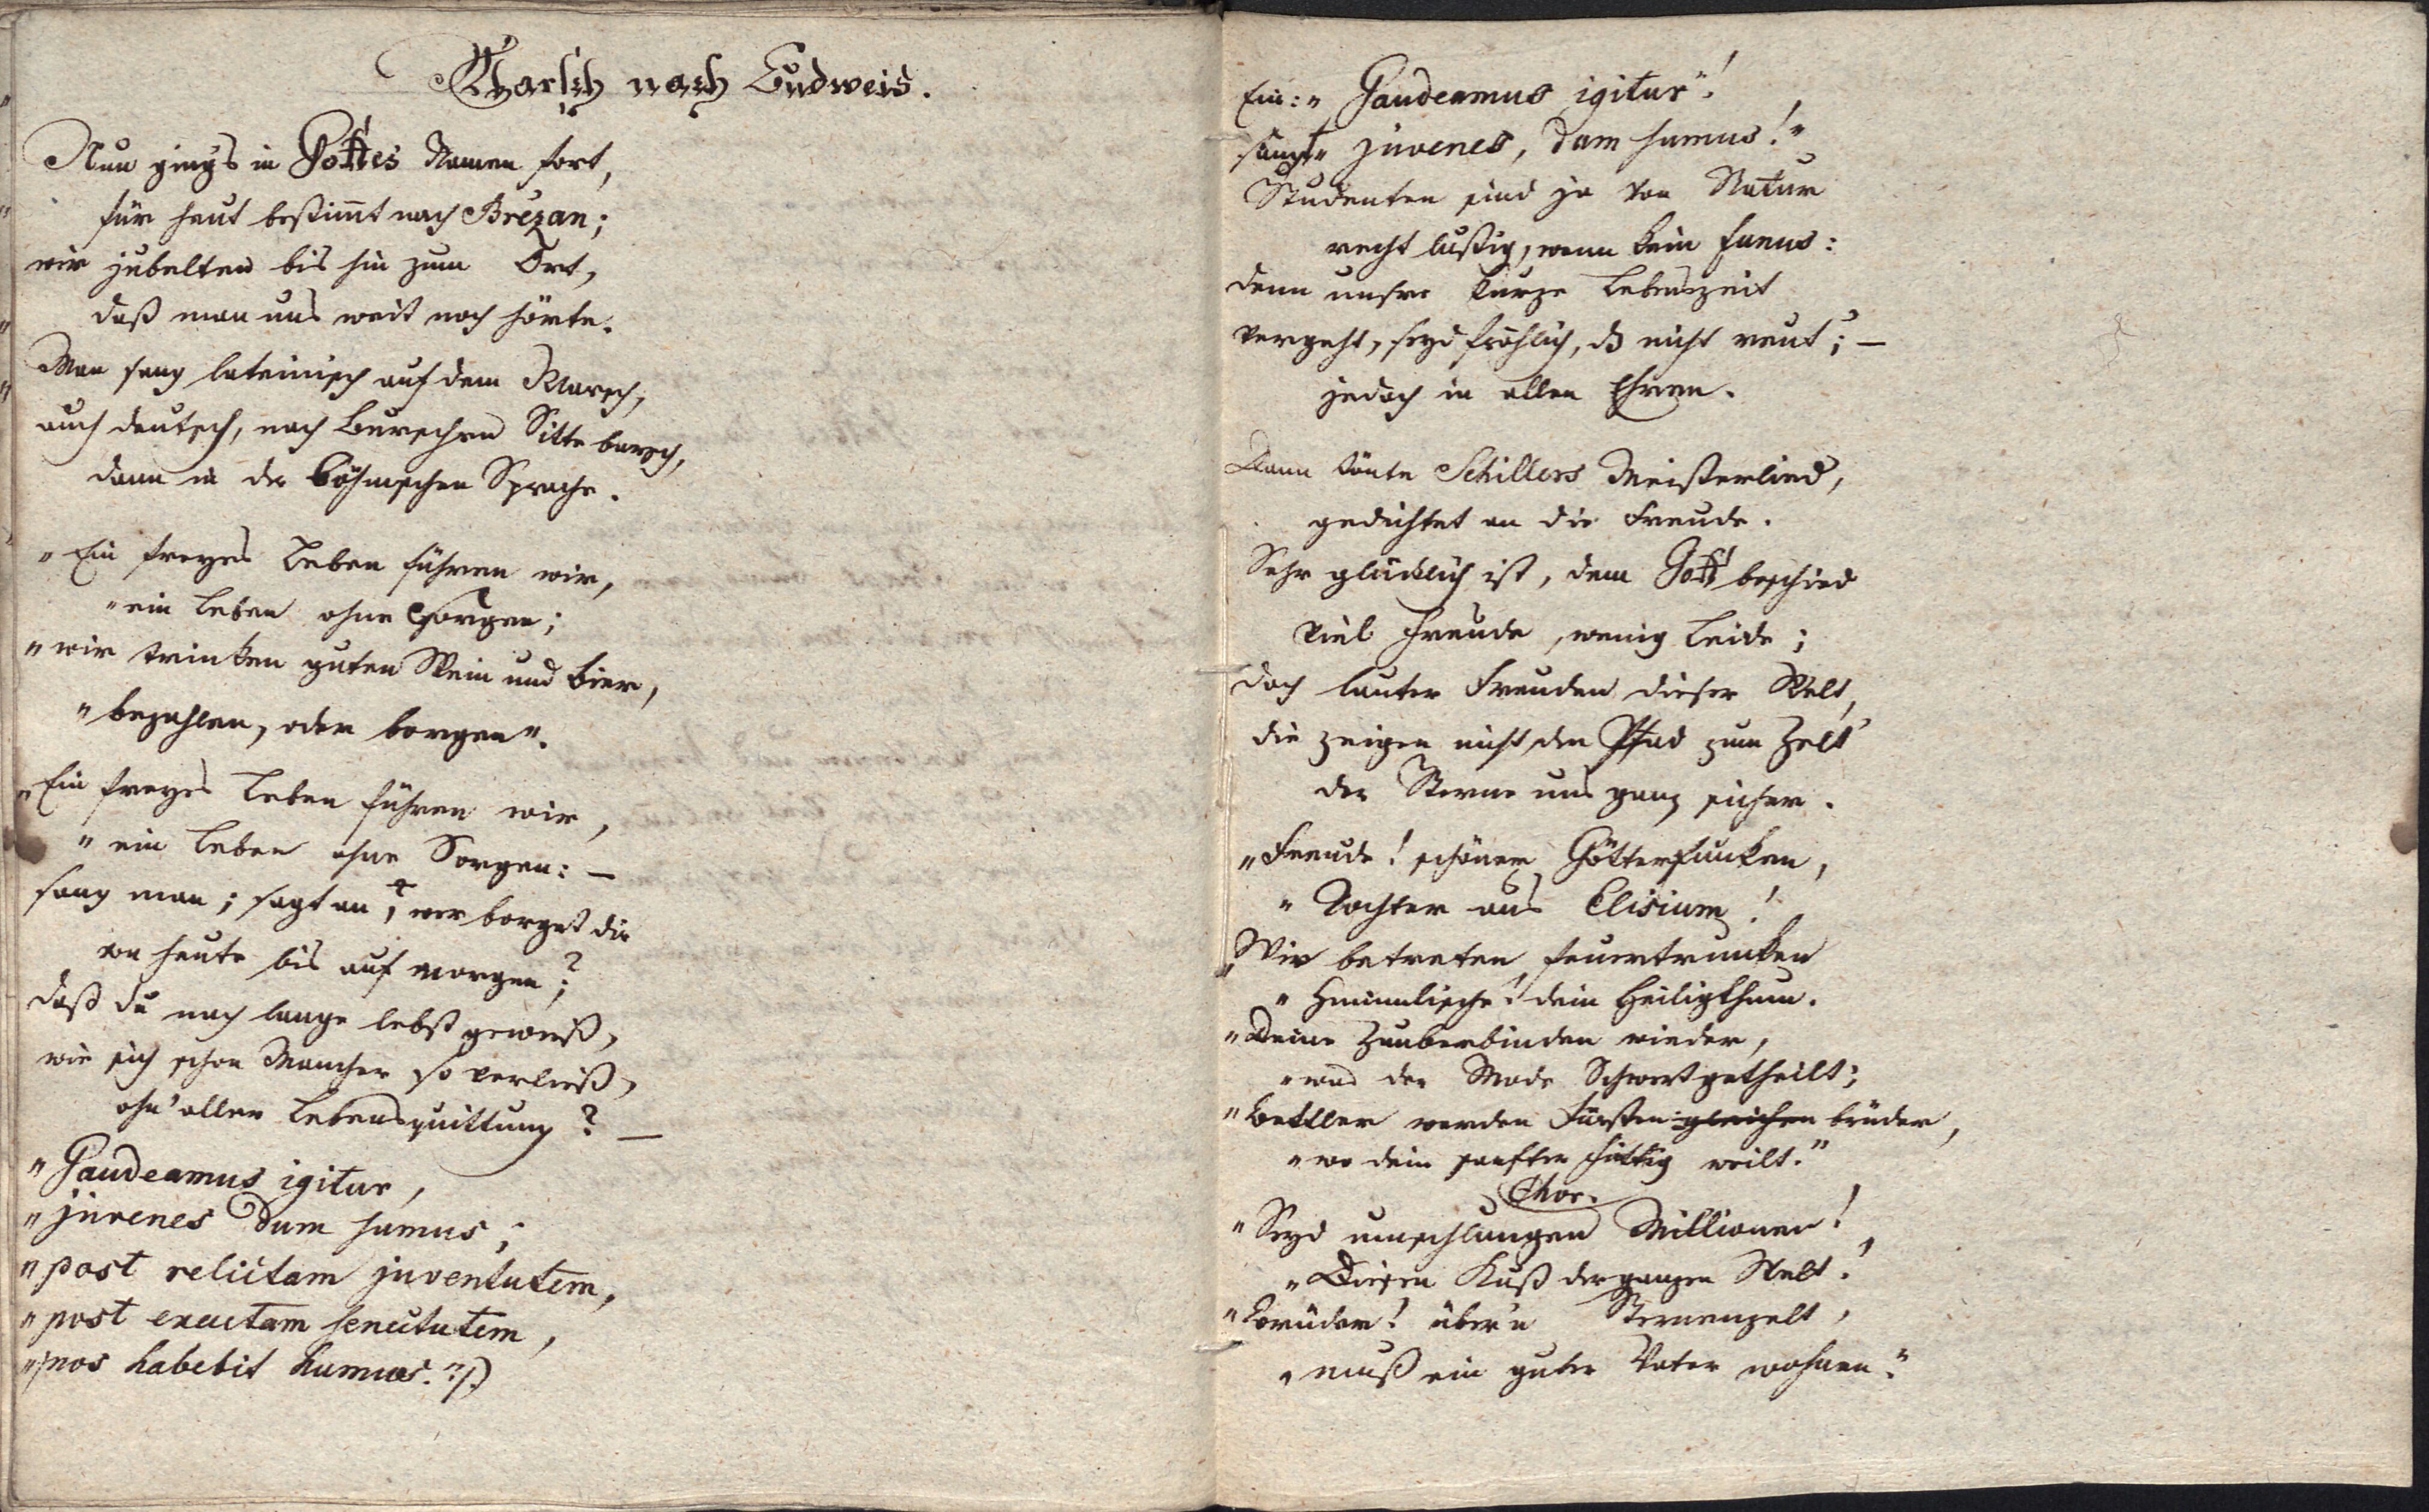 Marsch nach Budweis.
Nun ging's in Gottes Namen fort,
für heut bestim̄t nach Brézan;
wir jubelten bis hin zum Ort,
daß man uns weit noch hörte.
Man sang lateinisch auf dem Marsch,
auch deutsch, nach Burschen Sitte barsch,
dann in der böhmschen Sprache.
"Ein freyes Leben führen wir,
"ein Leben ohne Sorgen;
"wir trinken guten Wein und Bier,
"bezahlen, oder borgen".
"Ein freyes Leben führen wir,
"ein Leben ohne Sorgen: —
sang man; sagt an, wer borget dir
von heute bis auf morgen;?
daß du noch lange lebst gewieß,
wie sich schon Mancher so verließ,
ohn' aller Lebensquittung? —
"Gaudeamus igitur,
"juvenes dum sumus;
"post relictam juventutem,
"post exactam senectutem,
"nos habebit humus."
Ein: "Gaudeamus igitur"!
sangt "juvenes, dam sumus!"
Studenten sind ja von Natur
recht lustig, wenn kein funus:
denn unsre kurze Lebenszeit
vergeht, seyd fröhlich, ds nicht reut; —
jedoch in allen Ehren.
Dann tönte Schillers Meisterlied,
gedichtet an die Freude.
Sehr glücklich ist, dem Gott beschied
viel Freude, wenig Leide;
doch lauter Freuden dieser Welt,
die zeigen nicht den Pfad zum Zelt
der Sterne uns ganz sicher.
"Freude! schöner Götterfunken,
"Tochter aus Elisium!
"Wir betreten feuertrunken
"Himmlische! dein Heiligthum.
"Deine Zauber binden wieder,
"was der Mode Schwert getheilt;
"Bettler werden Fürsten=gleichen brüder,
"wo dein sanfter Fittig weilt."
Chor.
"Seyd umschlungen Millionen!
"Diesen Kuß der ganzen Welt!
"Brüder! über'n Sternenzelt,
"muß ein guter Vater wohnen."